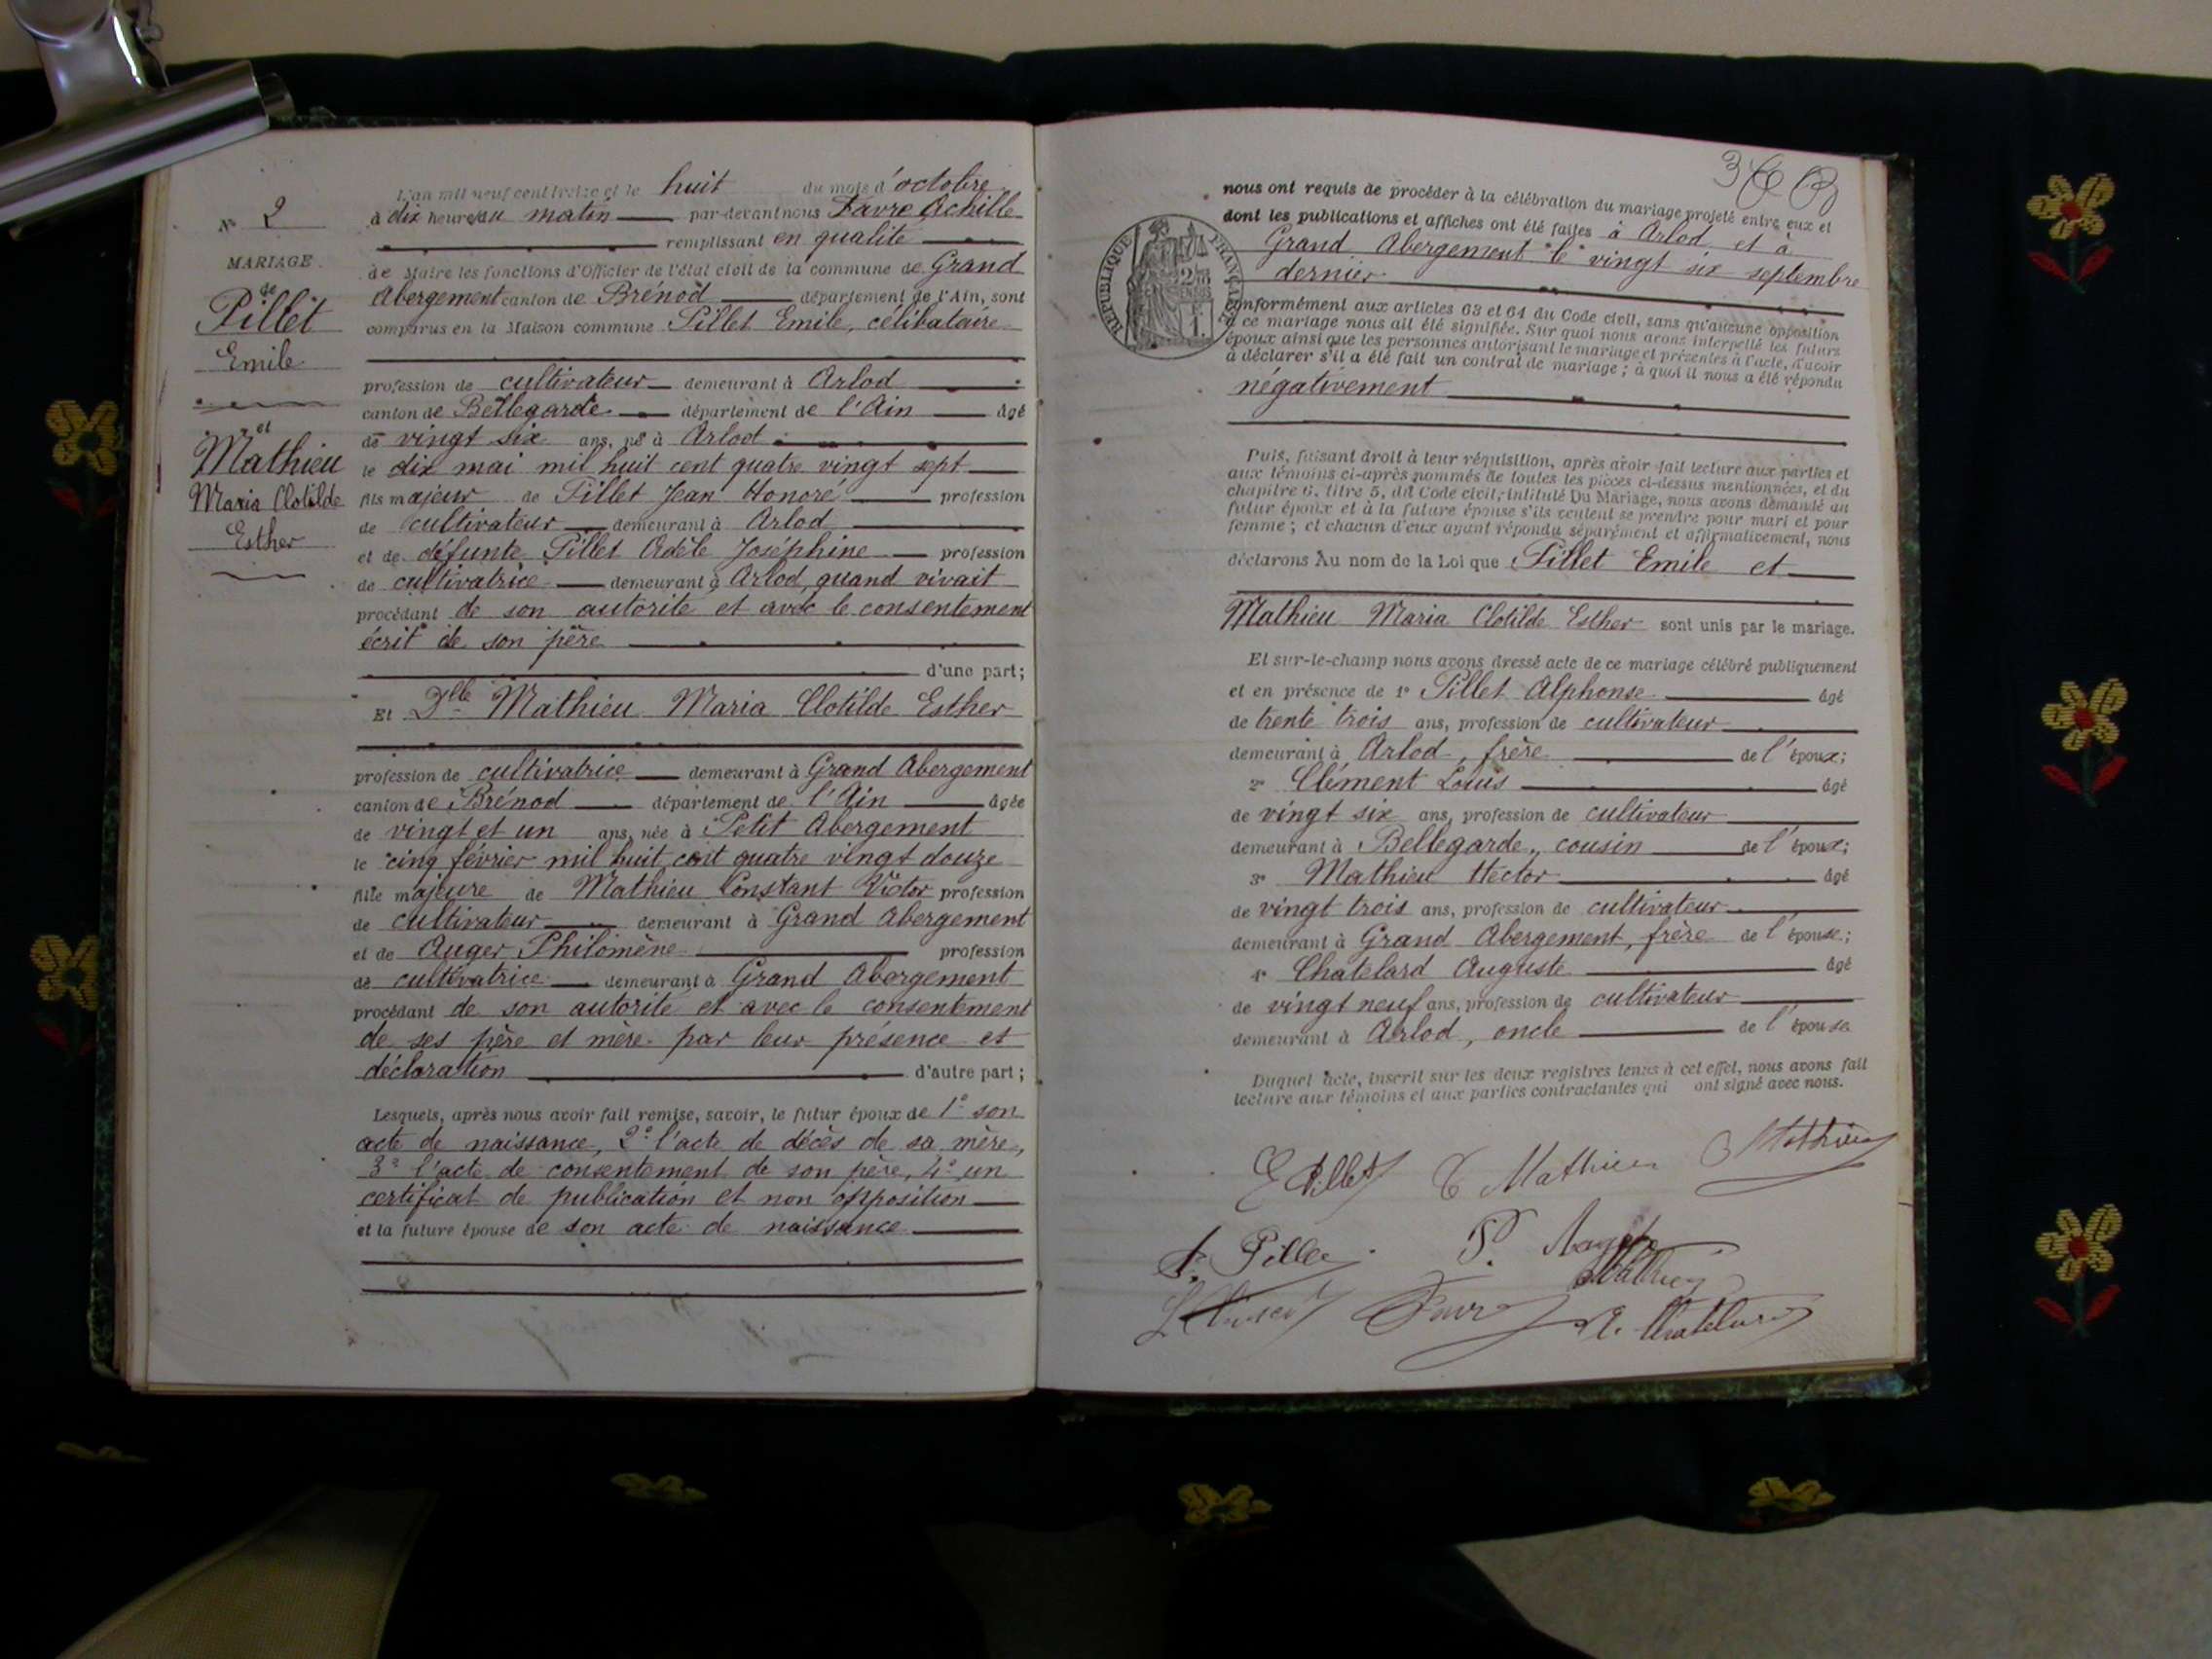 L'an mil neuf cent treize et le huit du mois d'octobre
à dix heures au matin par-devant nous Favre Achille
remplissant en qualité
de Maire les fonctions d'Officier de l'état civil de la commune de Grand
Abergement canton de Brénod département de l'Ain, sont
comparus en la Maison commune Pillet Emile, célibataire
profession de cultivateur demeurant à Arlod
canton de Bellegarde département de l'Ain âgé
de vingt six ans, né à Arlod
le dix mai mil huit cent quatre vingt sept
fils majeur de Pillet Jean Honoré profession
de cultivateur demeurant à Arlod
et de défunte Pillet Adèle Joséphine profession
de cultivatrice demeurant à Arlod, quand vivait
procédant de son autorité et avec le consentement
écrit de son père
d'une part;
Et Dlle Mathieu Maria Clotilde Esther
profession de cultivatrice demeurant à Grand Abergement
canton de Brénod département de l'Ain âgée
de vingt et un ans, née à Petit Abergement
le cinq février mil huit cent quatre vingt douze
fille majeure de Mathieu Constant Victor profession
de cultivateur demeurant à Grand Abergement
et de Auger Philomène profession
de cultivatrice demeurant à Grand Abergement
procédant de son autorité et avec le consentement
de ses père et mère par leur présence et
déclaration d'autre part;
Lesquels, après nous avoir fait remise, savoir, le futur époux de 1° son
acte de naissance, 2° l'acte de décès de sa mère,
3° l'acte de consentement de son père, 4° un
certificat de publication et non opposition
et la future épouse de son acte de naissance
N° 2
MARIAGE
de
Pillet
Emile
et
Mathieu
Maria Clotilde
Esther
nous ont requis de procéder à la célébration du mariage projeté entre eux et
dont les publications et affiches ont été faites à Arlod et à
Grand Abergement le vingt six septembre
dernier
conformément aux articles 63 et 64 du Code civil, sans qu'aucune opposition
à ce mariage nous ait été signifiée. Sur quoi nous avons interpellé les futurs
époux ainsi que les personnes autorisant le mariage et présentes à l'acte, d'avoir
à déclarer s'il a été fait un contrat de mariage; à quoi il nous a été répondu
négativement
Puis, faisant droit à leur réquisition, après avoir fait lecture aux parties et
aux témoins ci-après nommés de toutes les pièces ci-dessus mentionnées, et du
chapitre 6, titre 5, du Code civil, intitulé Du Mariage, nous avons demandé au
futur époux et à la future épouse s'ils veulent se prendre pour mari et pour
femme; et chacun d'eux ayant répondu séparément et affirmativement, nous
déclarons Au nom de la Loi que Pillet Emile et
Mathieu Maria Clotilde Esther sont unis par le mariage.
Et sur-le-champ nous avons dressé acte de ce mariage célébré publiquement
et en présence de 1° Pillet Alphonse âgé
de trente trois ans, profession de cultivateur
demeurant à Arlod, frère de l'époux;
2° Clément Louis âgé
de vingt six ans, profession de cultivateur
demeurant à Bellegarde, cousin de l'époux;
3° Mathieu Hector âgé
de vingt trois ans, profession de cultivateur
demeurant à Grand Abergement, frère de l'épouse;
4° Chatelard Auguste âgé
de vingt neuf ans, profession de cultivateur
demeurant à Arlod, oncle de l'épouse
Duquel acte, inscrit sur les deux registres tenus à cet effet, nous avons fait
lecture aux témoins et aux parties contractantes qui ont signé avec nous.
E Pillet C Mathieu Mathieu
Pillet P.
Mathieu
Favre A. Chatelard
RÉPUBLIQUE FRANÇAISE